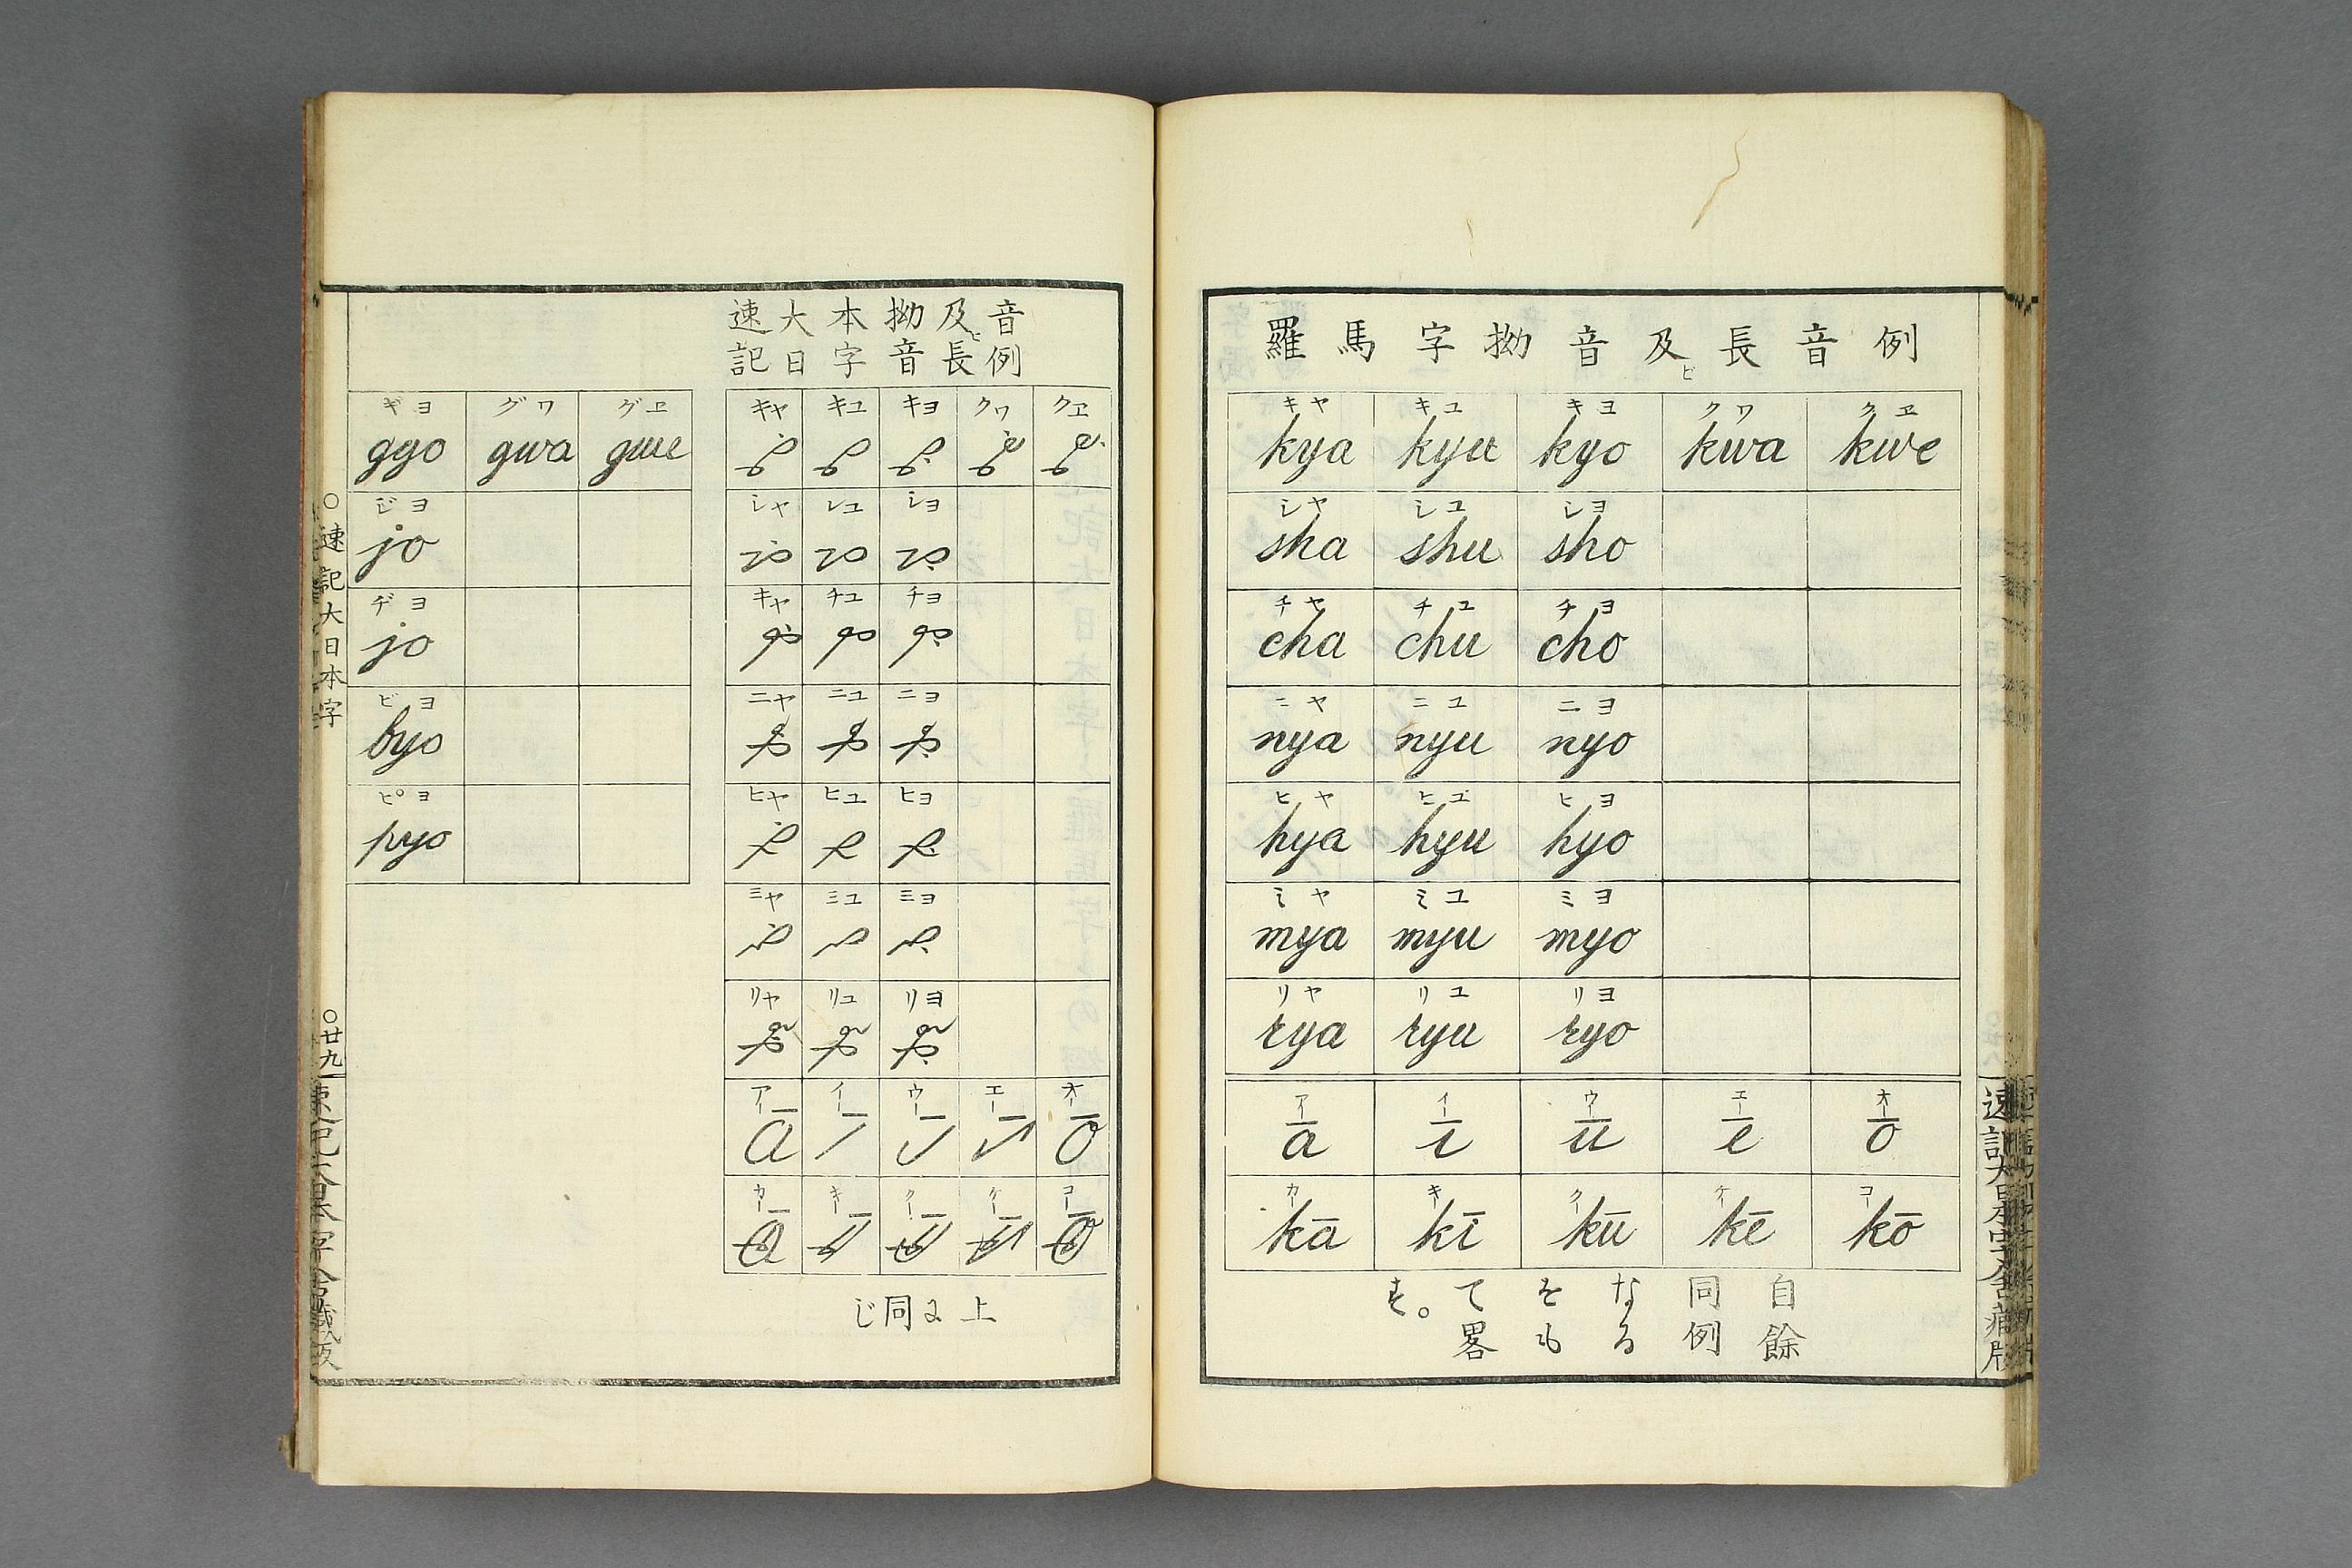 羅馬字拗音及ビ長音例
キヤ キユ キヨ クワ クヱ
kya kyu kyo kwa kwe
シヤ シユ シヨ
sha shu sho
チヤ チユ チヨ
cha chu cho
ニヤ ニユ ニヨ
nya nyu nyo
ヒヤ ヒユ ヒヨ
hya hyu hyo
ミヤ ミユ ミヨ
mya myu myo
リヤ リユ リヨ
rya ryu ryo
アー イー ウー エー オー
ā ī ū ē ō
カー キー クー ケー コー
kā kī kū kē kō
自餘
同例
なる
をも
て畧
す。
速記
大日
本字
拗音
及ビ長
音例
キヤ キユ キヨ クワ クヱ
シヤ シユ シヨ
キヤ チユ チヨ
ニヤ ニユ ニヨ
ヒヤ ヒユ ヒヨ
ミヤ ミユ ミヨ
リヤ リユ リヨ
アー イー ウー エー オー
カー キー クー ケー コー
上に同じ
ギヨ グワ グヱ
gyo gwa gwe
ジヨ
jo
ヂヨ
jo
ビヨ
byo
ピヨ
pyo
○速記大日本字
○廿九